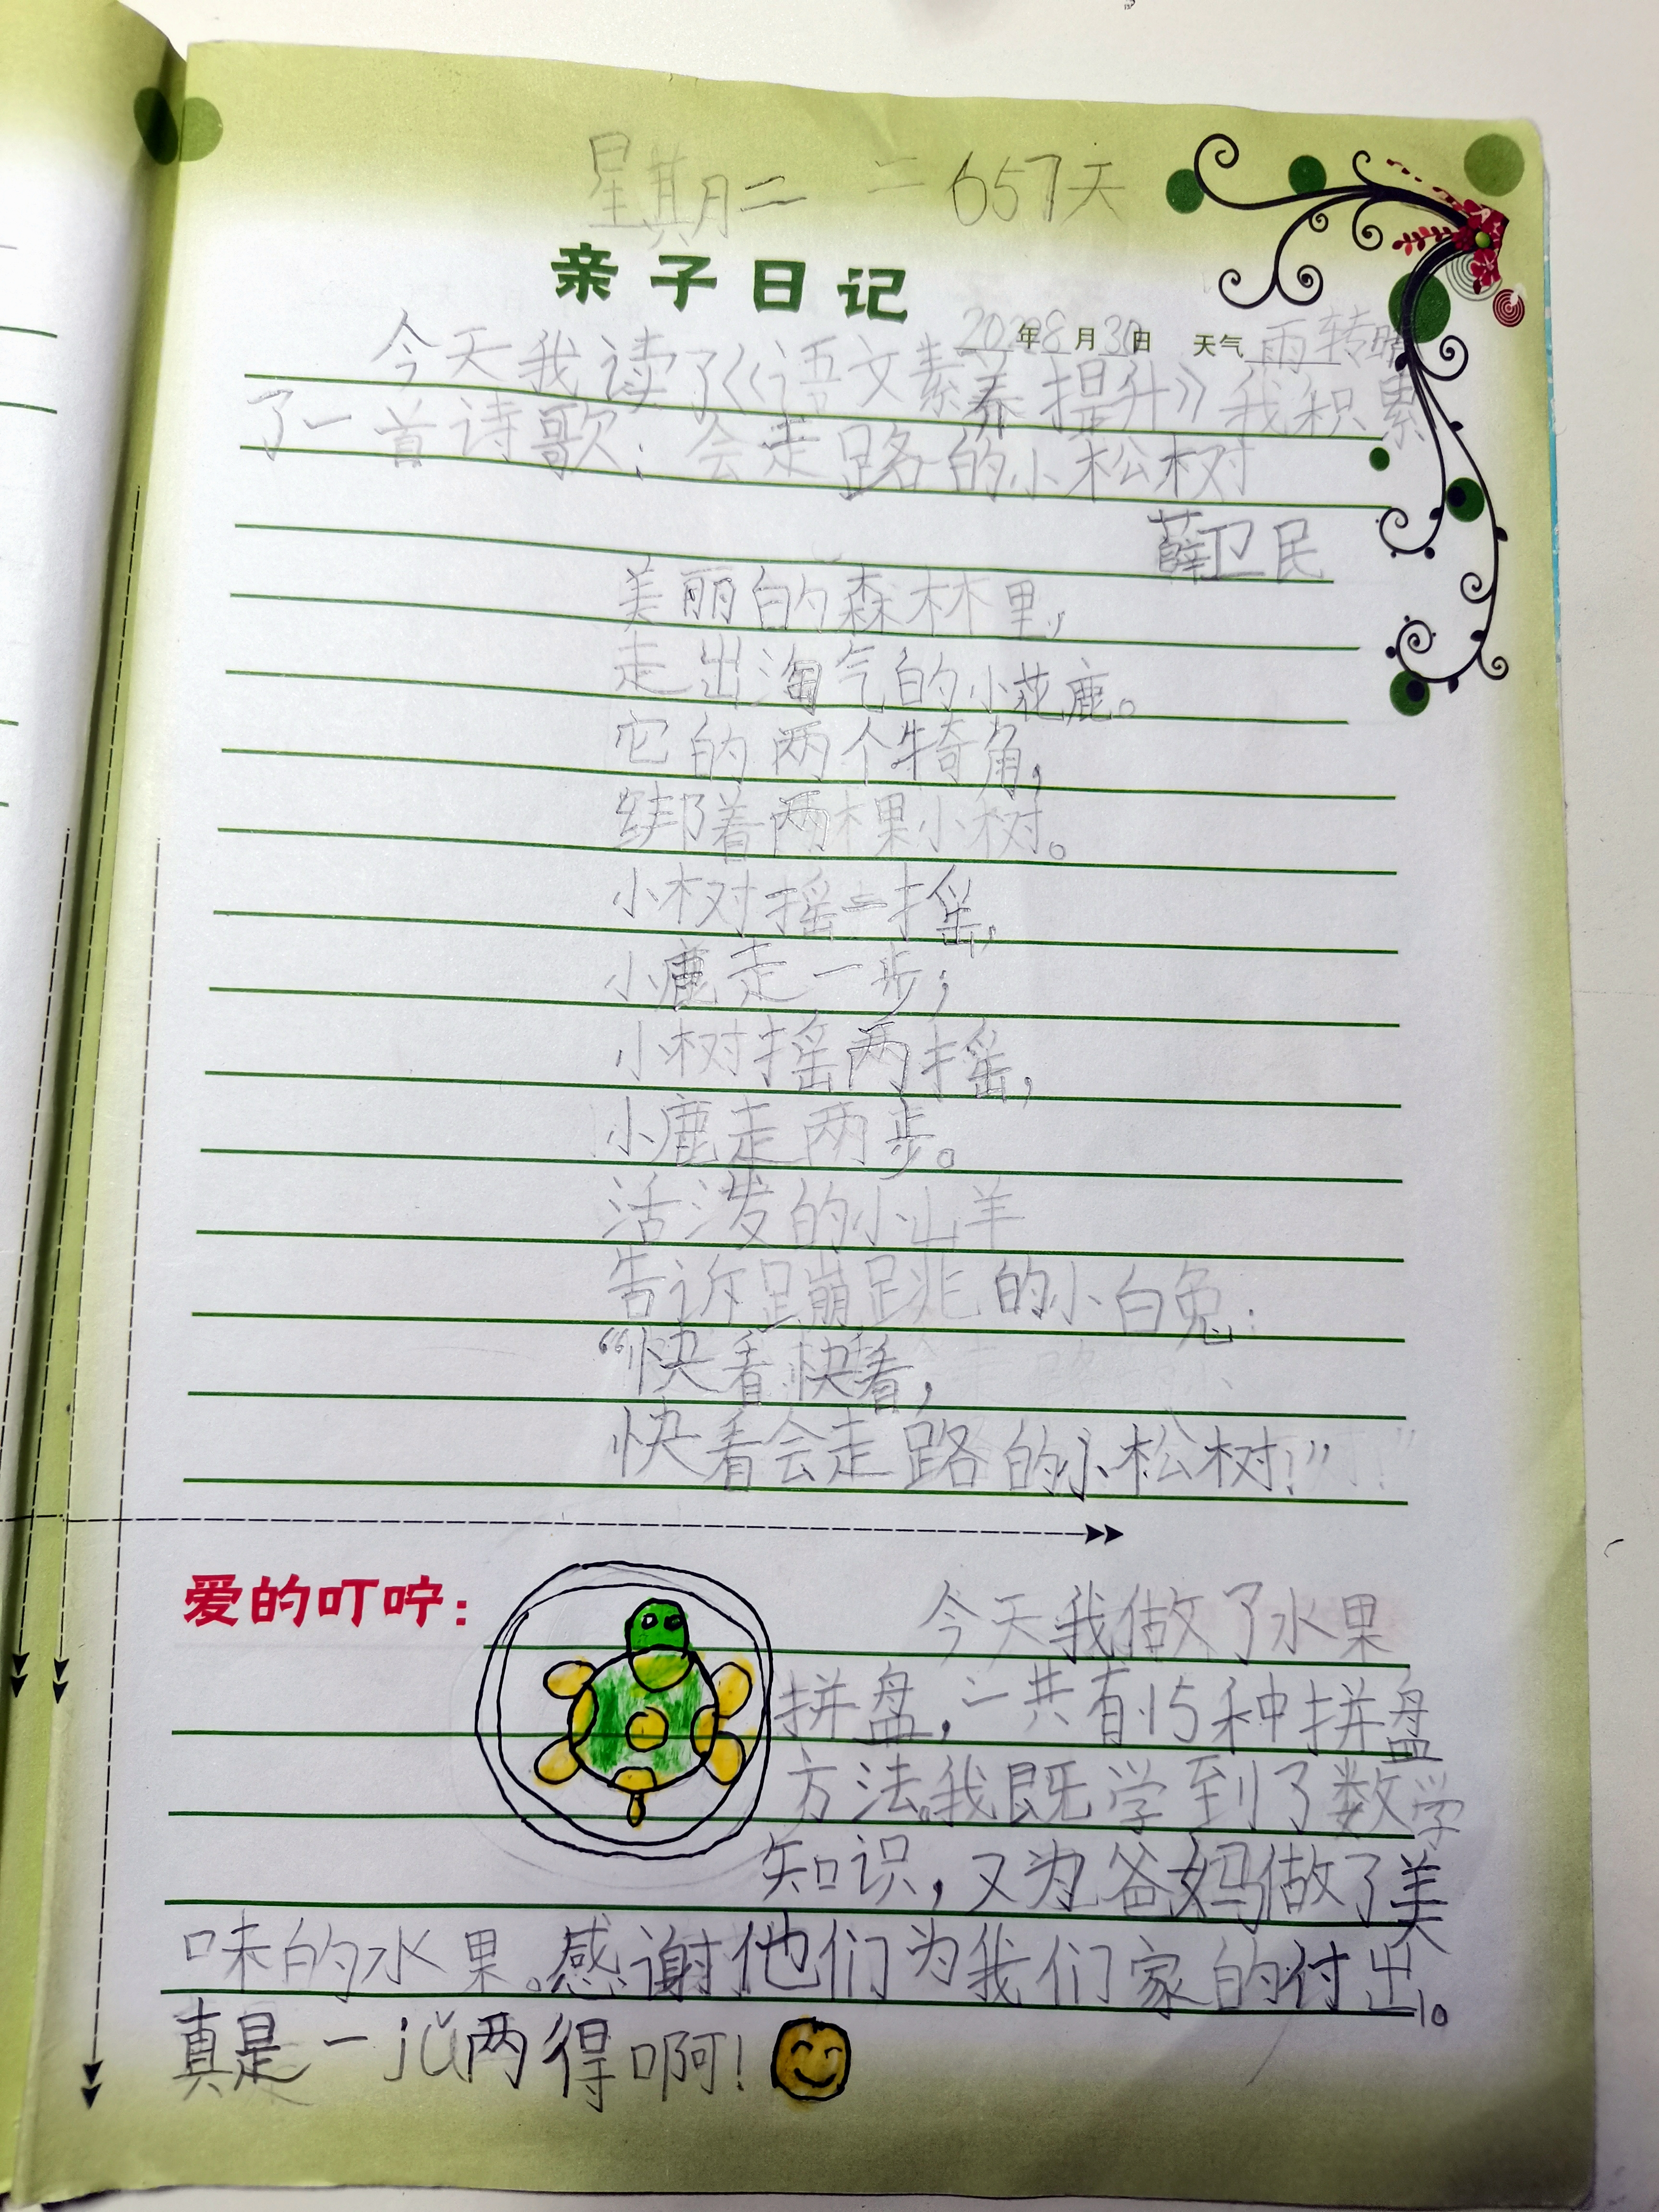 星期二 二 657天
亲子日记
2022年8月30日 天气 雨转晴
今天我读了《语文素养提升》我积累
了一首诗歌:会走路的小松树
薛卫民
美丽的森林里,
走出淘气的小花鹿。
它的两个犄角,
绑着两棵小树。
小树摇一摇,
小鹿走一步;
小树摇两摇,
小鹿走两步。
活泼的小山羊
告诉蹦跳的小白兔:
“快看快看,
快看会走路的小松树!”
爱的叮咛:
今天我做了水果
拼盘,一共有15种拼盘
方法。我既学到了数学
知识,又为爸妈做了美
味的水果。感谢他们为我们家的付出。
真是一jǔ两得啊!